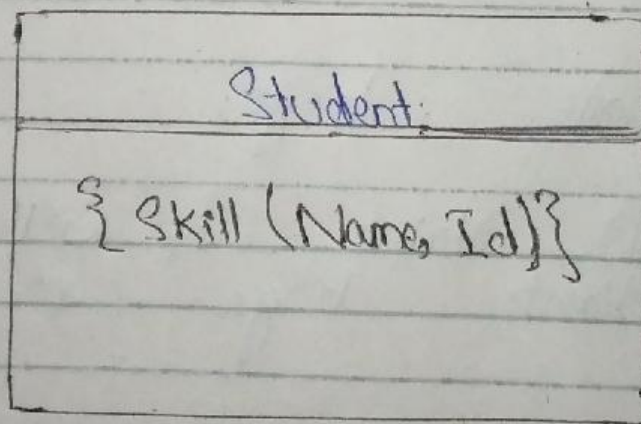 Student
{Skill (Name, Id)}